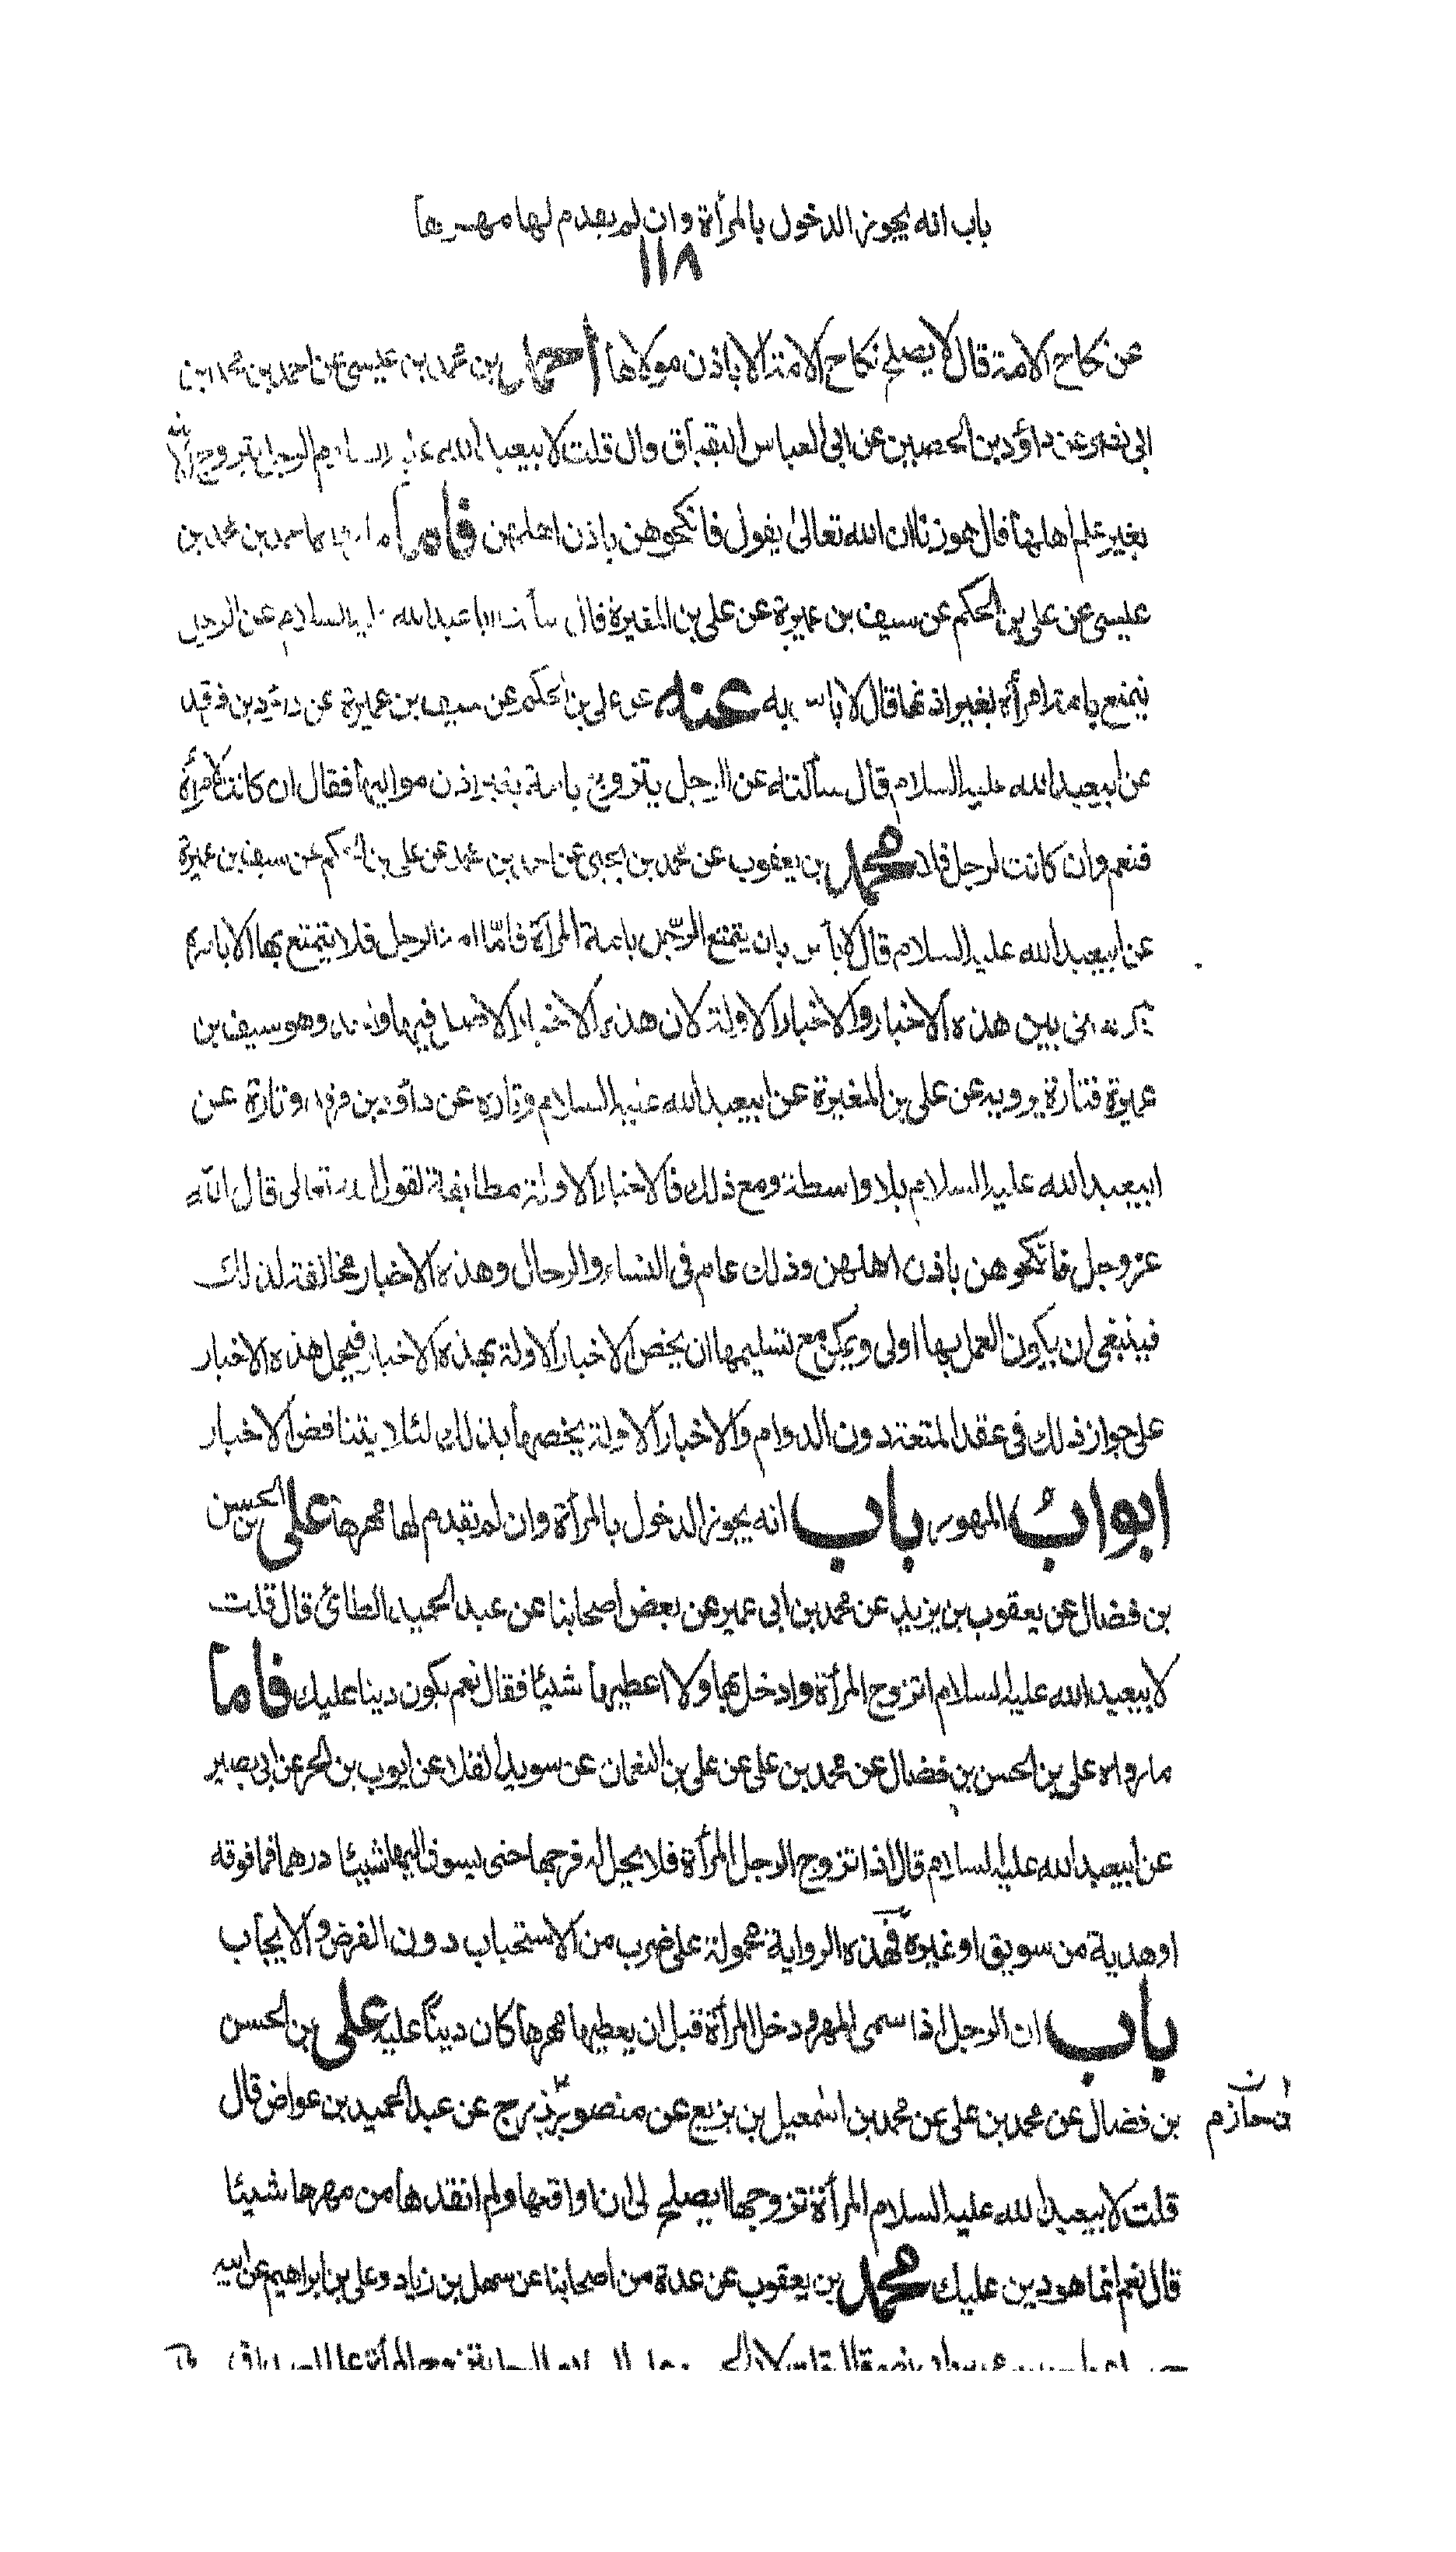 باب انه يجوز الدخول بالمرأة وان لم يقدم لها مهرها
١١٨
عن نكاح الامة قال لا يصلح نكاح الامة الا باذن مولاها احمد بن محمد بن عيسى عن احمد بن محمد بن
ابى نصر عن داؤد بن الحصين عن ابى العباس البقباق قال قلت لابيعبد الله عليه السلام الرجل يتزوج الأمة
بغير علم اهلها قال هو زنا ان الله تعالى يقول فانكحوهن باذن اهلهن فاما ما احمد بن محمد بن
عيسى عن على بن الحكم عن سيف بن عميرة عن على بن المغيرة قال سألت ابا عبد الله عليه السلام عن الرجل
يتمتع بامة امرأة بغير اذنها قال لا بأس به عنه عن على بن الحكم عن سيف بن عميرة عن داؤد بن فرقد
عن ابيعبد الله عليه السلام قال سألته عن الرجل يتزوج بامة بغير اذن مواليها فقال ان كانت لامرأة
فنعم وان كانت لرجل فلا محمد بن يعقوب عن محمد بن يحيى عن احمد بن محمد عن على بن الحكم عن سيف بن عميرة
عن ابيعبد الله عليه السلام قال لا بأس بان يتمتع الرجل بامة المرأة فاما امة الرجل فلا يتمتع بها الا بامره
بين هذه الاخبار والاخبار الاولة لان هذه الاخبار الاصل فيها واحد وهو سيف بن
عميرة فتارة يرويه عن على بن المغيرة عن ابيعبد الله عليه السلام وتارة عن داؤد بن فرقد وتارة عن
ابيعبد الله عليه السلام بلا واسطة ومع ذلك فالاخبار الاولة مطابقة لقول الله تعالى قال الله
عز وجل فانكحوهن باذن اهلهن وذلك عام فى النساء والرجال وهذه الاخبار مخالفة لذلك
فينبغى ان يكون العمل بها اولى ويمكن مع تسليمها ان يخص الاخبار الاولة بهذه الاخبار فيحمل هذه الاخبار
على جواز ذلك فى عقد المتعة دون الدوام والاخبار الاولة يخصها بذلك لئلا يتناقض الاخبار
ابواب المهور باب انه يجوز الدخول بالمرأة وان لم يقدم لها مهرها على بن الحسن
بن فضال عن يعقوب بن يزيد عن محمد بن ابى عمير عن بعض اصحابنا عن عبد الحميد الطائى قال قلت
لابيعبد الله عليه السلام اتزوج المرأة وادخل بها ولا اعطيها شيئا فقال نعم يكون دينا عليك فاما
ما رواه على بن الحسن بن فضال عن محمد بن على عن على بن النعمان عن سويد القلا عن ايوب بن الحر عن ابى بصير
عن ابيعبد الله عليه السلام قال اذا تزوج الرجل المرأة فلا يحل له فرجها حتى يسوق اليها شيئا درهما فما فوقه
او هدية من سويق او غيره فهذه الرواية محمولة على ضرب من الاستحباب دون الفرض والايجاب
باب ان الرجل اذا سمى المهر ودخل المرأة قبل ان يعطيها مهرها كان دينا عليه على بن الحسن
بن فضال عن محمد بن على عن محمد بن اسمعيل بن بزيع عن منصور بزرج عن عبد الحميد بن عواض قال
بن حازم
قلت لابيعبد الله عليه السلام المرأة تزوجها ايصلح لى ان اواقعها ولم انقدها من مهرها شيئا
قال نعم انما هو دين عليك محمد بن يعقوب عن عدة من اصحابنا عن سهل بن زياد وعلى بن ابراهيم عن ابيه